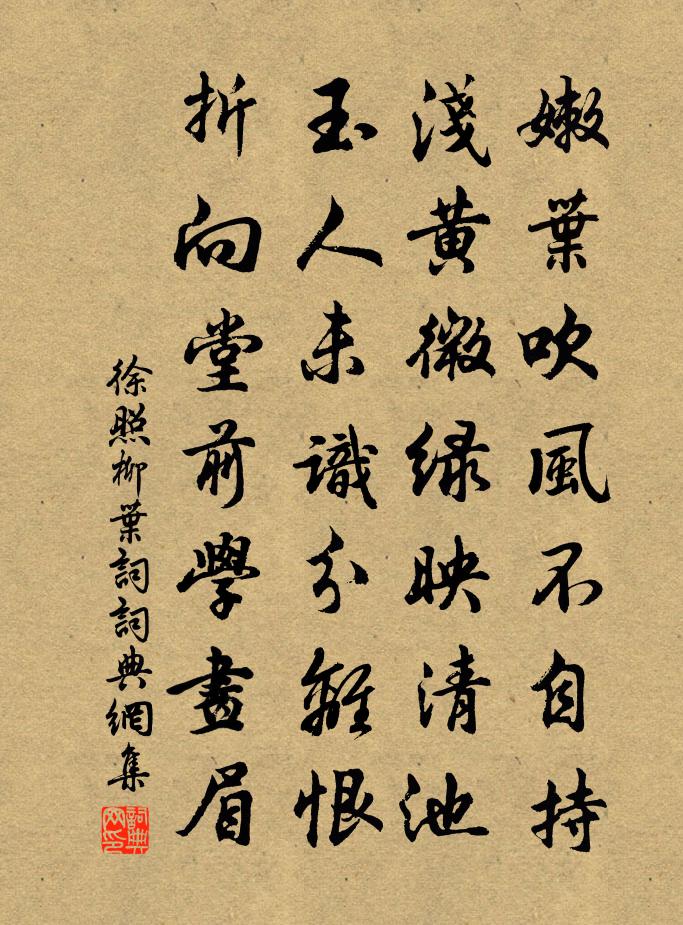 嫩葉吹風不自持
淺黄微緑映清池
玉人未識分離恨
折向堂前學畫眉
徐照柳葉詞詞典網集
詞典网印